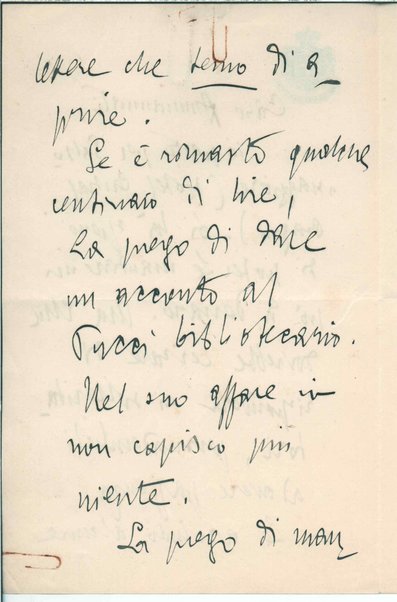 lettere che temo di a
prire.
Se è rimasto qualche
centinaio di lire,
La prego di dare
un acconto al
Tucci bibliotecario.
Nel suo affare io
non capisco più
niente.
La prego di man